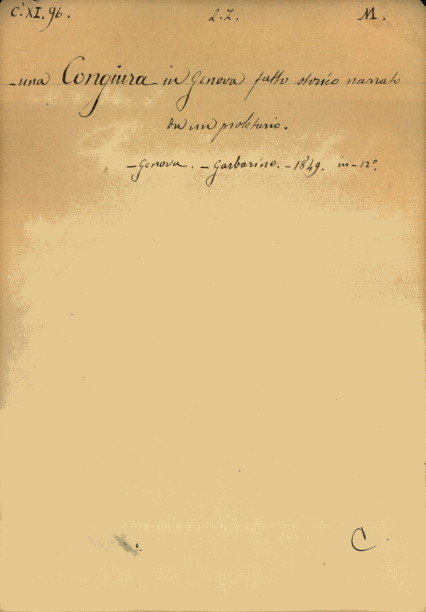 C.XI.96. L.Z. M.
-una Congiura in Genova fatto storico narrato
da un proletario.
-Genova. -Garbarino. -1849. in-12°.
C